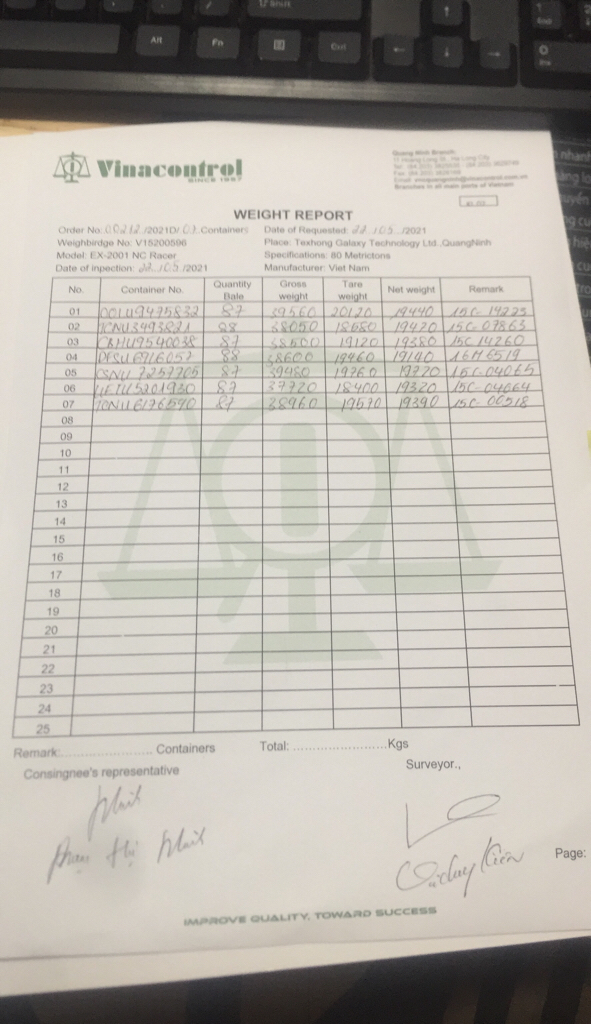 Vinacontrol
SINCE 1957
Quang Ninh Branch
Branches in all main ports of Vietnam
WEIGHT REPORT
Order No: 00212/2021D/ 07 Containers Date of Requested: 22/05/2021
Weighbirdge No: V15200596 Place: Texhong Galaxy Technology Ltd.,QuangNinh
Model: EX-2001 NC Racer Specifications: 80 Metrictons
Date of inpection: 22/05/2021 Manufacturer: Viet Nam
No. Container No. Quantity Bale Gross weight Tare weight Net weight Remark
01 OOLU9475832 87 39560 20120 19440 15C-14223
02 88 38050 19420 15C-07863
03 87 38500 19120 19380 15C 14260
04 88 38600 19460 19140 16M 6519
05 87 39480 19760 19720 15C-04065
06 87 37720 18400 19320 15C-04064
07 TCNU6176590 87 38960 19570 19390 15C-00518
08
09
10
11
12
13
14
15
16
17
18
19
20
21
22
23
24
25
Remark:..................... Containers Total: ........................Kgs
Consingnee's representative Surveyor.,
Page:
IMPROVE QUALITY, TOWARD SUCCESS